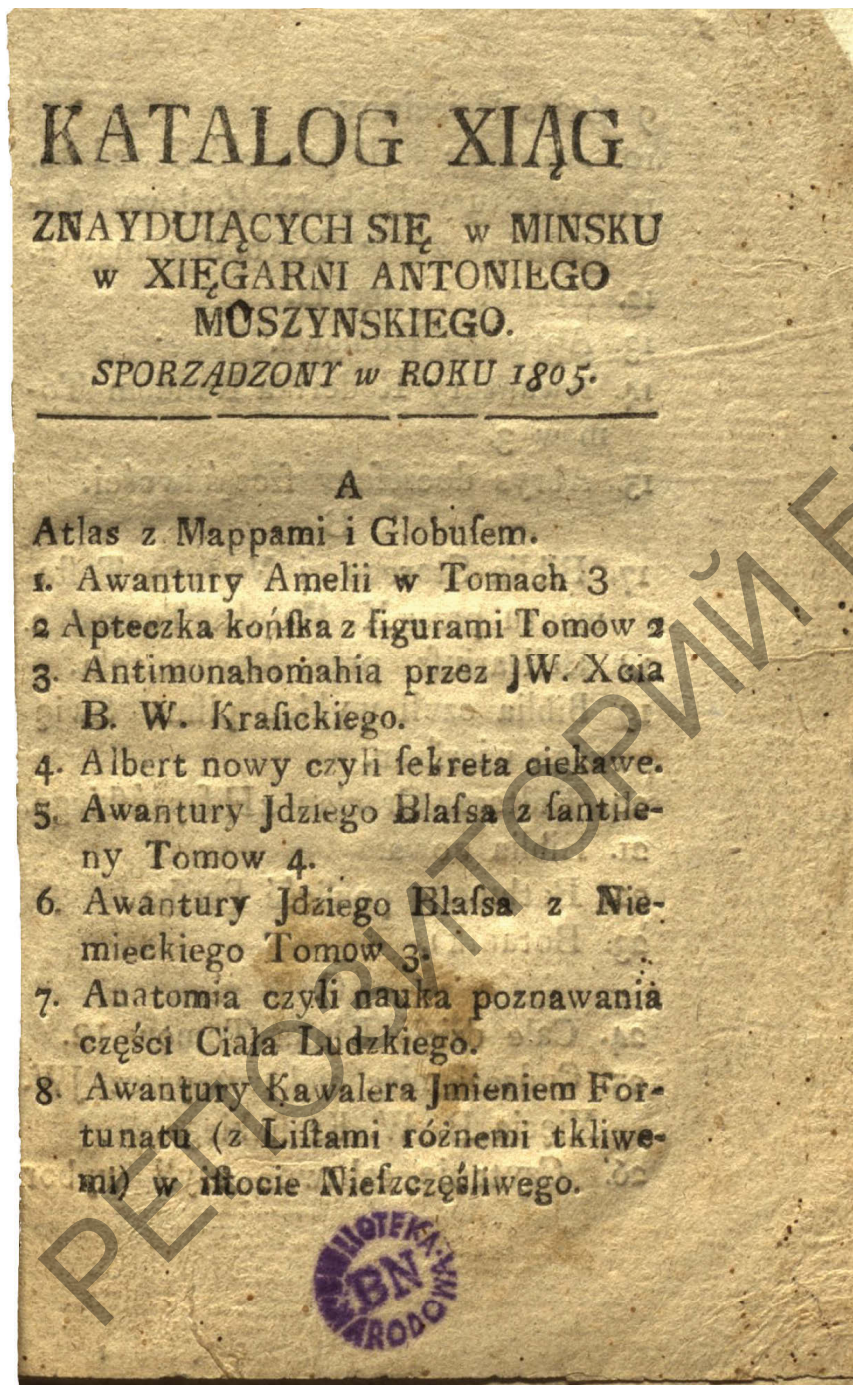 KATALOG XIĄG
ZNAYDUIĄCYCH SIĘ w MINSKU
w XIĘGARNI ANTONIEGO
MOSZYNSKIEGO.
SPORZĄDZONY w ROKU 1805.
A
Atlas z Mappami i Globuſem.
1. Awantury Amelii w Tomach 3
2 Apteczka końſka z figurami Tomow 2
3. Antimonahomahia przez JW. Xcia
B. W. Kraſickiego.
4. Albert nowy czyli ſekreta ciekawe.
5. Awantury Jdziego Blaſsa z ſantile-
ny Tomow 4.
6. Awantury Jdziego Blaſsa z Nie-
mieckiego Tomow 3.
7. Anatomia czyli nauka poznawania
części Ciała Ludzkiego.
8. Awantury Kawalera Jmieniem For-
tunatu (z Liſtami różnemi tkliwe-
mi) w iſtocie Nieſzczęśliwego.
BIBLIOTEKA NARODOWA
BN
РЕПОЗИТОРИЙ Б